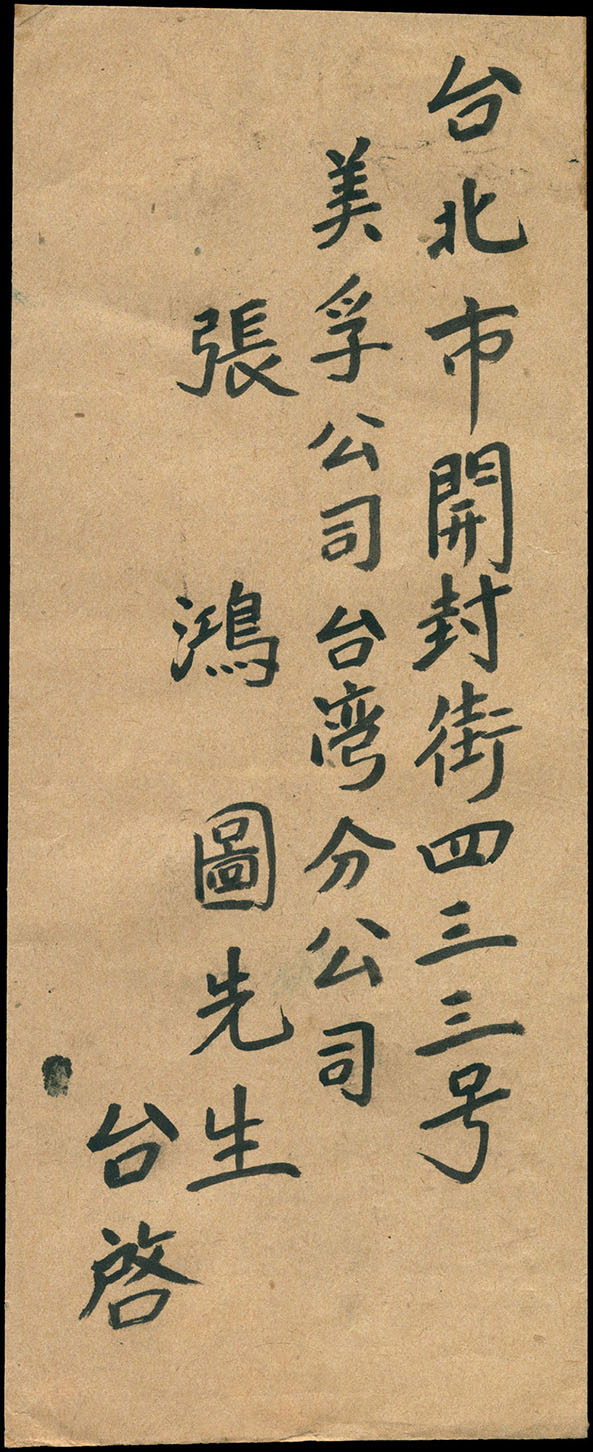 台北市開封街四三三号
美孚公司台湾分公司
張鴻圖先生
台啓